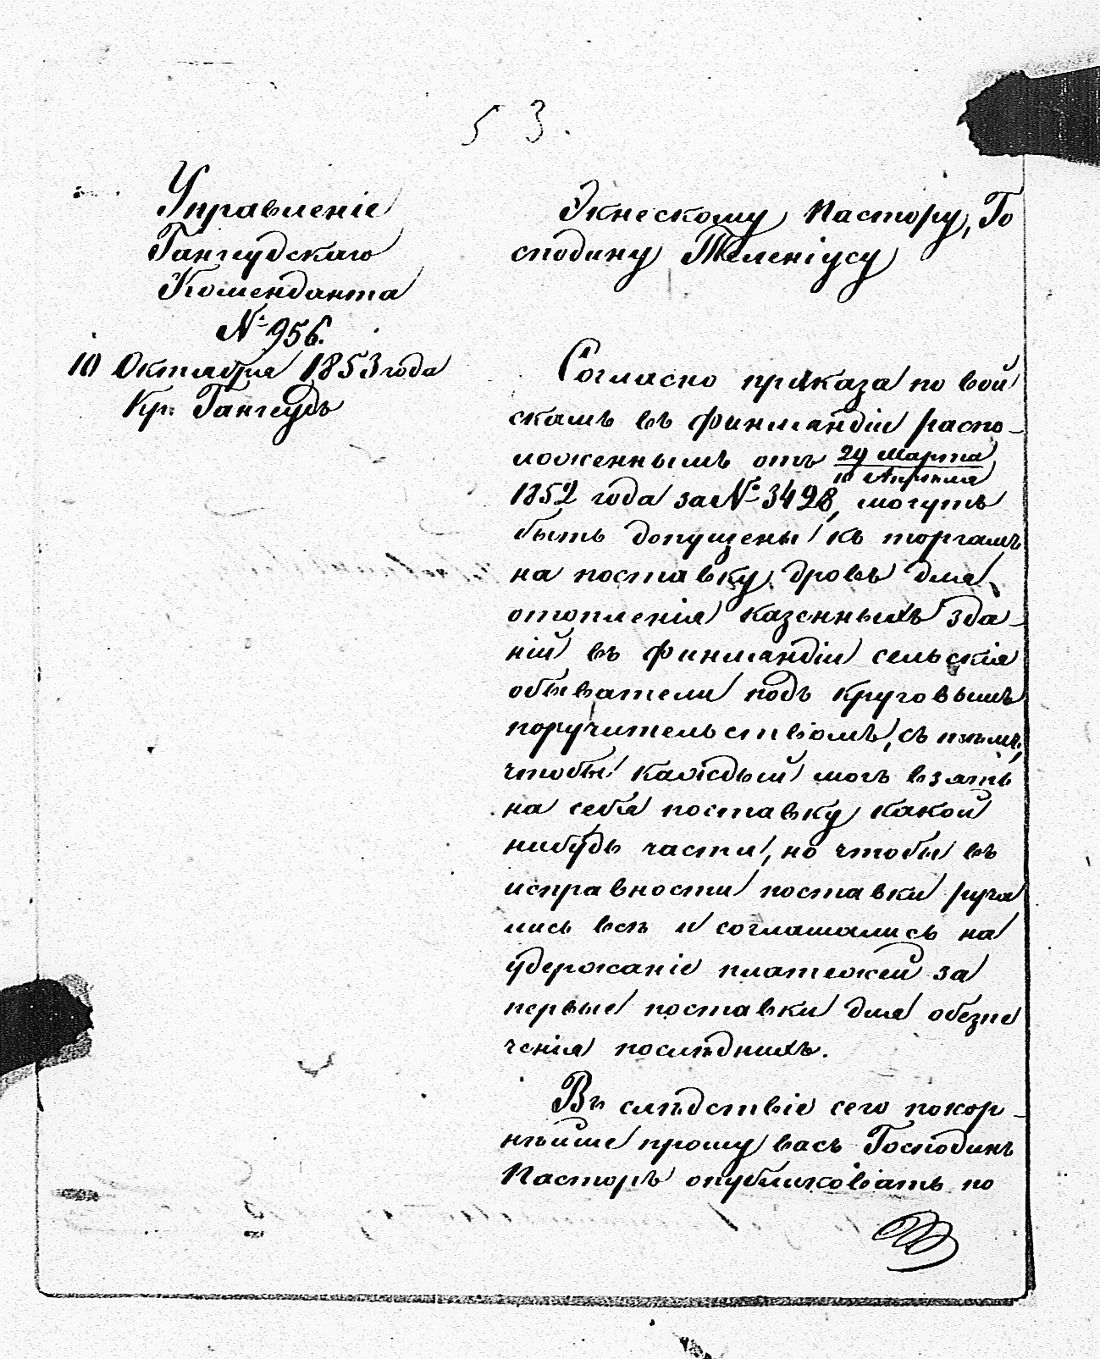 53.
Управленіе
Гангеудскаго
Коменданта
№ 956.
10 Октября 1853 года
Кр. Гангеудъ
Экнескому Пастору, Го
сподину Теленіусу
Согласно приказа по вой
скамъ въ Финляндіи распо-
ложеннымъ отъ 29 Марта
10 Апреля
1852 года за № 3428, могутъ
быть допущены къ торгамъ
на поставку дровъ для
отопленія казенныхъ зда-
ній въ Финляндіи сельскія
обыватели подъ круговымъ
поручительствомъ, съ тѣмъ,
чтобы каждый могъ взять
на себя поставку какой
нибудь части, но чтобы въ
исправности поставки руча
лись всѣ и соглашались на
удержаніе платежей за
первые поставки для обезпе
ченія послѣднихъ.
Въ слѣдствіе сего покор-
нѣйше прошу васъ Господинъ
Пасторъ опубликовать по